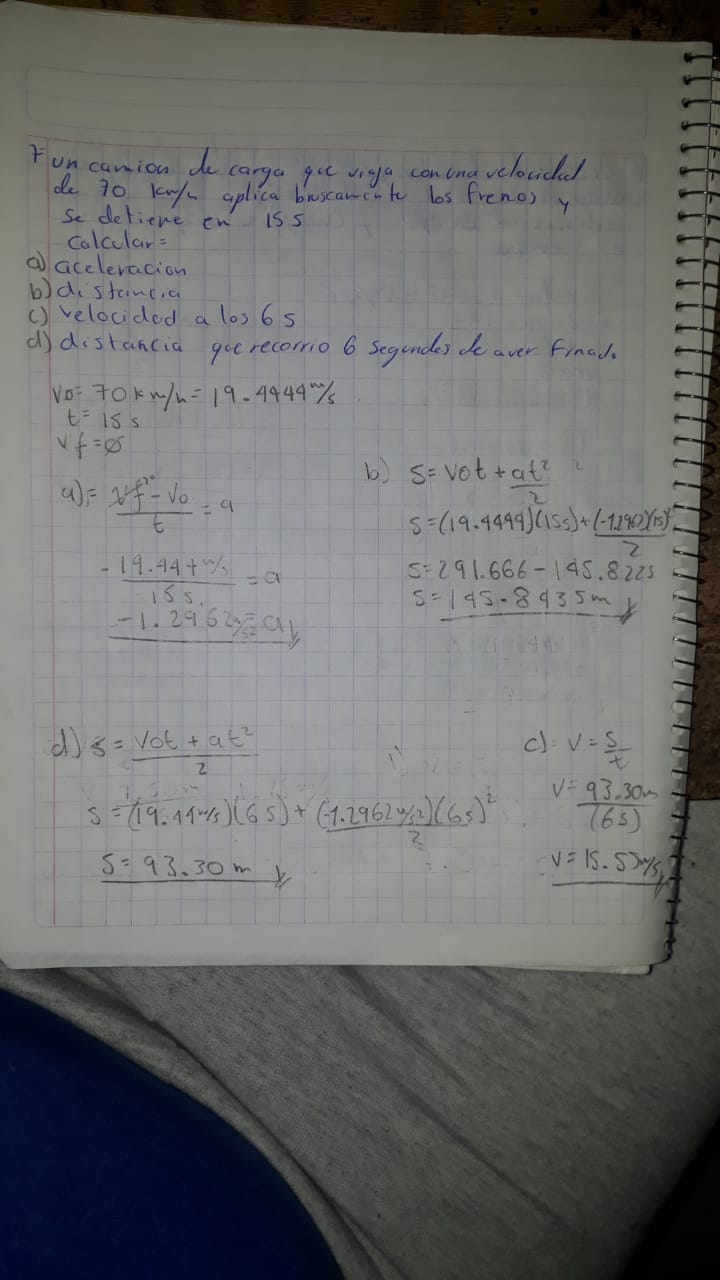 7 un camion de carga que viaja con una velocidad
de 70 km/h aplica bruscamente los frenos y
se detiene en 15 s
Calcular =
a) aceleracion
b) distancia
c) velocidad a los 6 s
d) distancia que recorrio 6 segundos de aver frnado.
Vo= 70 km/h = 19.4444 m/s
t= 15 s
vf=Ø
a)= Vf - Vo / t = a
- 19.444 m/s / 15 s. = a
-1.2962 m/s² = a
b) S= Vot + at² / 2
S=(19.4444)(15s)+(-1.2962)(15)² / 2
S=291.666 - 145.8225
S=145.8435m
d) S = Vot + at² / 2
S = (19.44 m/s)(6 s) + (-1.2962 m/s²)(6s)² / 2
S= 93.30 m
c). V = S / t
V= 93.30m / (6s)
V= 15.55 m/s